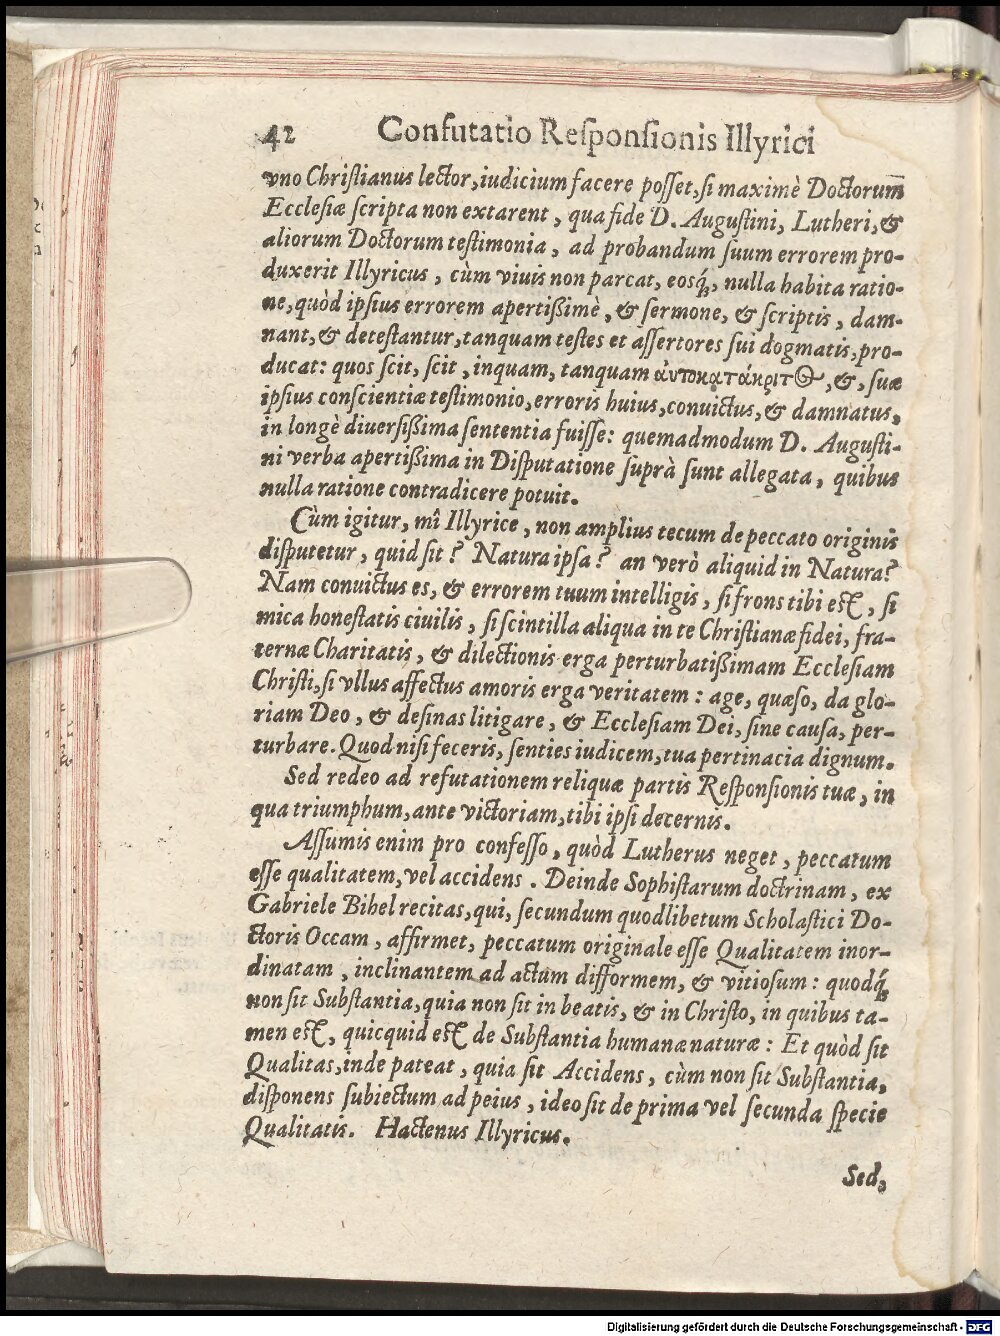 42 Confutatio Reſponſionis Illyrici
vno Chriſtianus lector, iudicium facere poſſet, ſi maximè Doctorum̄
Eccleſiæ ſcripta non extarent, qua fide D. Auguſtini, Lutheri, &
aliorum Doctorum teſtimonia, ad probandum ſuum errorem pro-
duxerit Illyricus, cùm viuis non parcat, eosq́;, nulla habita ratio-
ne, quòd ipſius errorem apertißimè, & ſermone, & ſcriptis, dam-
nant, & deteſtantur, tanquam teſtes et aſſertores ſui dogmatis, pro-
ducat: quos ſcit, ſcit, inquam, tanquam ἀυτοκατάκριτ⊙, &, ſuæ
ipſius conſcientiæ teſtimonio, erroris huius, conuictus, & damnatus,
in longè diuerſißima ſententia fuiſſe: quemadmodum D. Auguſti-
ni verba apertißima in Diſputatione ſuprà ſunt allegata, quibus
nulla ratione contradicere potuit.
Cùm igitur, mî Illyrice, non amplius tecum de peccato originis
diſputetur, quid ſit? Natura ipſa? an verò aliquid in Natura?
Nam conuictus es, & errorem tuum intelligis, ſi frons tibi eſt, ſi
mica honeſtatis ciuilis, ſi ſcintilla aliqua in te Chriſtianæ fidei, fra-
ternæ Charitatis, & dilectionis erga perturbatißimam Eccleſiam
Chriſti, ſi vllus affectus amoris erga veritatem: age, quæſo, da glo-
riam Deo, & deſinas litigare, & Eccleſiam Dei, ſine cauſa, per-
turbare. Quod niſi feceris, ſenties iudicem, tua pertinacia dignum.
Sed redeo ad refutationem reliquæ partis Reſponſionis tuæ, in
qua triumphum, ante victoriam, tibi ipſi decernis.
Aſſumis enim pro confeſſo, quòd Lutherus neget, peccatum
eſſe qualitatem, vel accidens. Deinde Sophiſtarum doctrinam, ex
Gabriele Bihel recitas, qui, ſecundum quodlibetum Scholaſtici Do-
ctoris Occam, affirmet, peccatum originale eſſe Qualitatem inor-
dinatam, inclinantem ad actum difformem, & vitioſum: quodq́;
non ſit Subſtantia, quia non ſit in beatis, & in Chriſto, in quibus ta-
men eſt, quicquid eſt de Subſtantia humanæ naturæ: Et quòd ſit
Qualitas, inde pateat, quia ſit Accidens, cùm non ſit Subſtantia,
diſponens ſubiectum ad peius, ideo ſit de prima vel ſecunda ſpecie
Qualitatis. Hactenus Illyricus.
Sed,
Digitalisierung gefördert durch die Deutsche Forschungsgemeinschaft - DFG